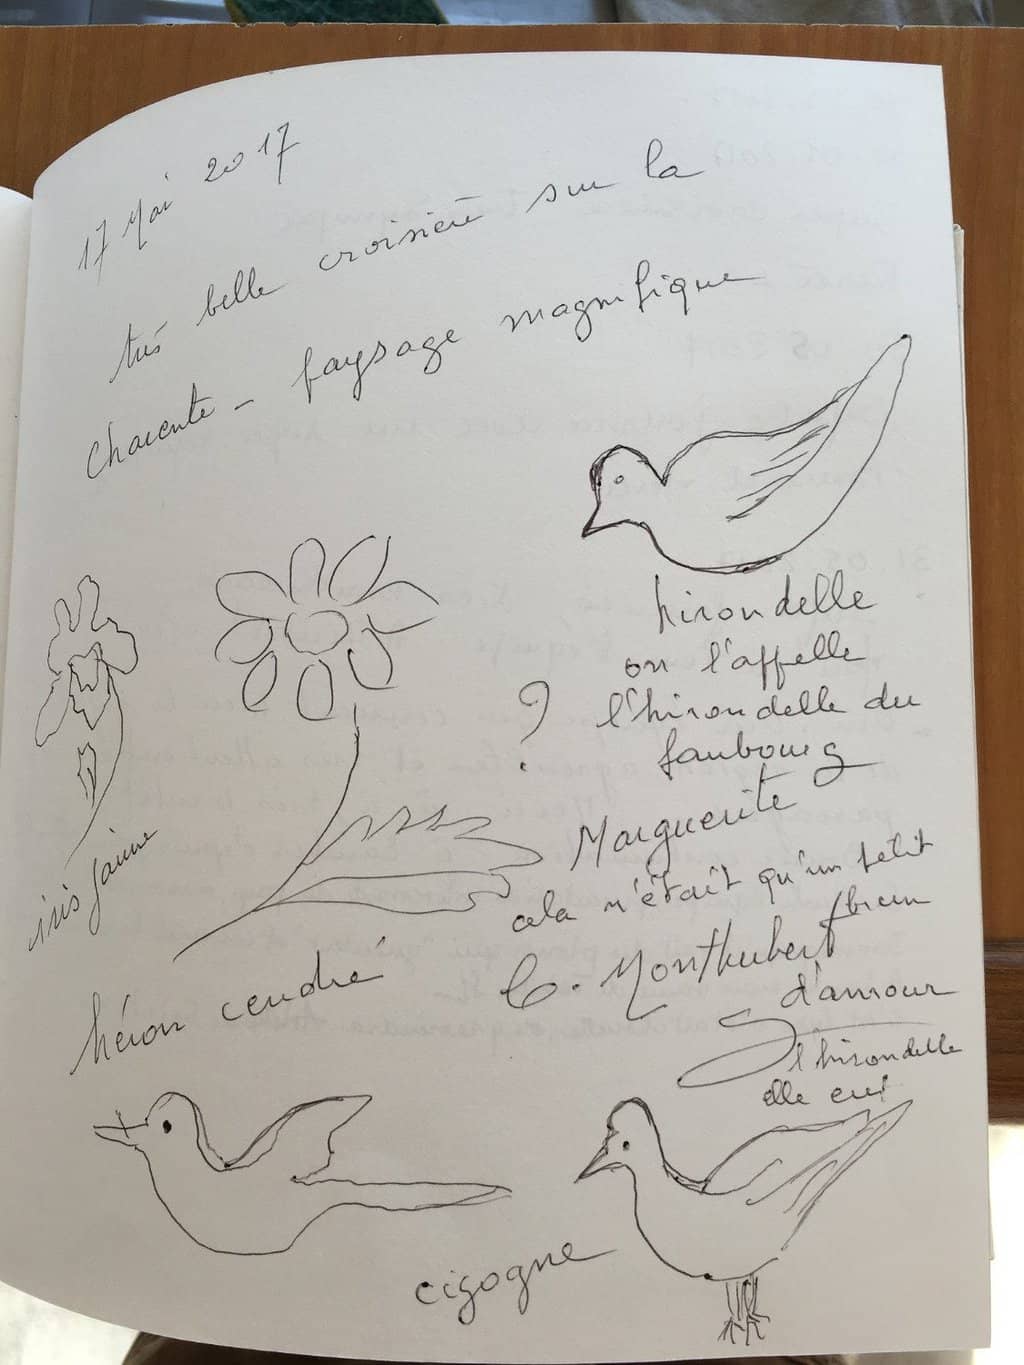 17 Mai 2017
très belle croisière sur la
Charente - paysage magnifique
hirondelle
on l'appelle
l'hirondelle du
faubourg
?
Marguerite
cela n'était qu'un petit
brin
d'amour
C. Monthubert
l'hirondelle
elle
iris jaune
héron cendré
cigogne